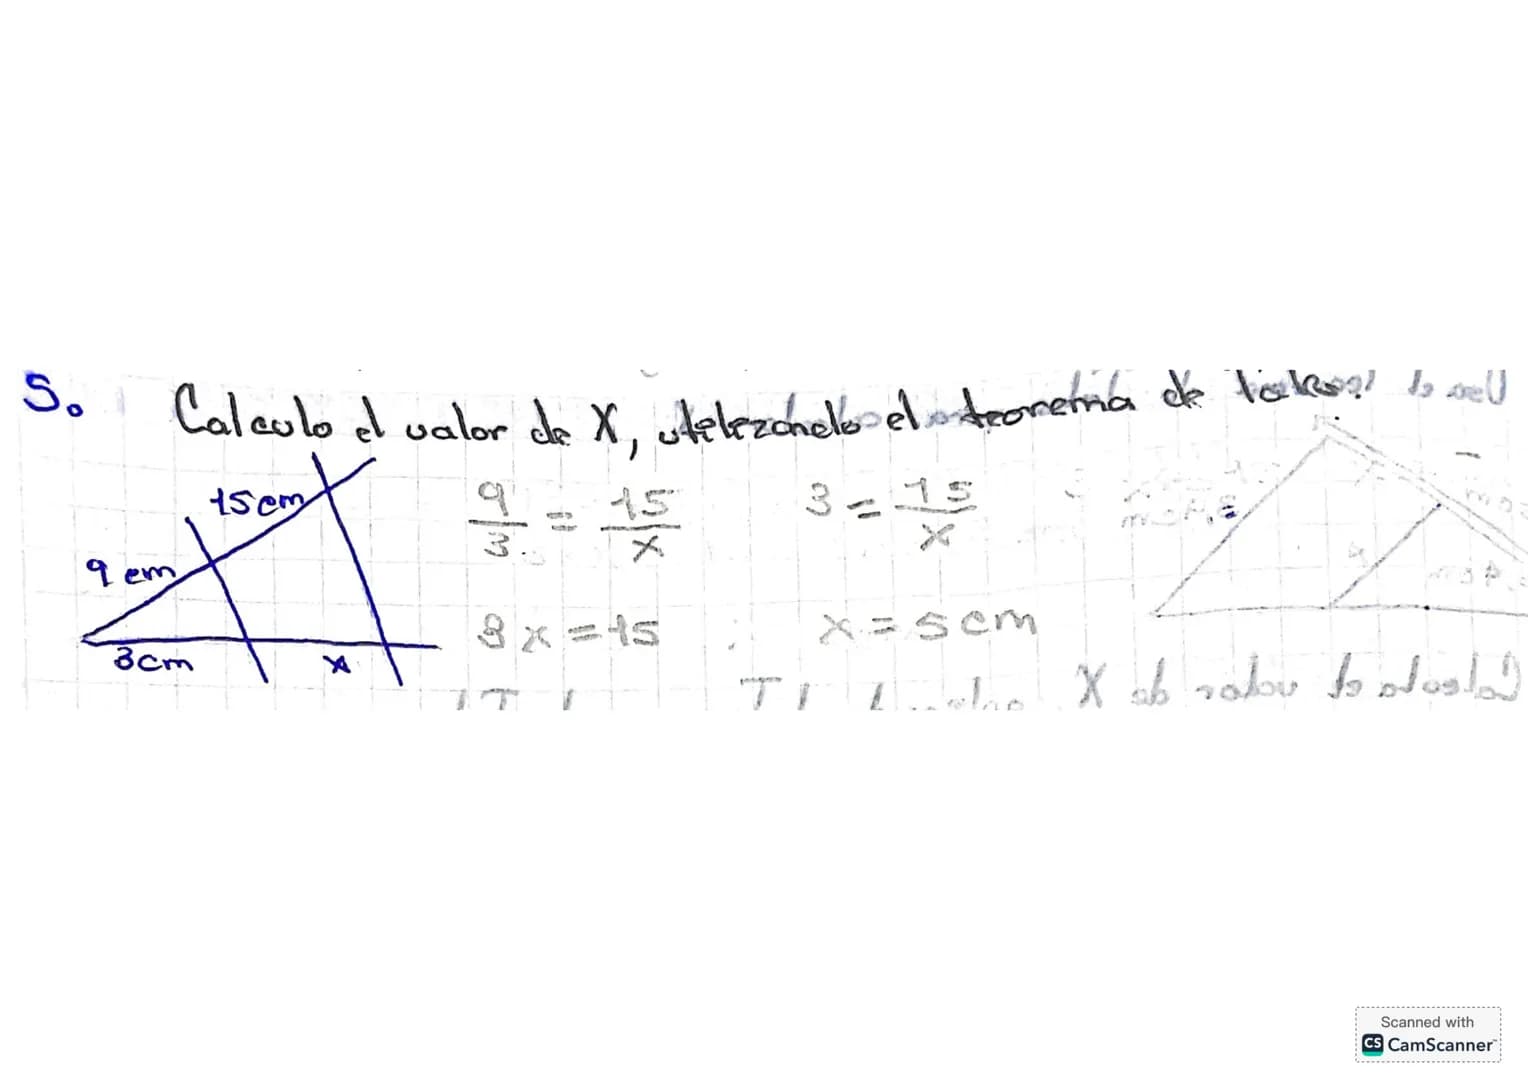 5. Calculo el valor de X, utilizando el teorema de tales!
15cm
9 cm
3cm
x
9/3 = 15/x
3 = 15/x
3x = 15
x = 5cm
Scanned with
CS CamScanner